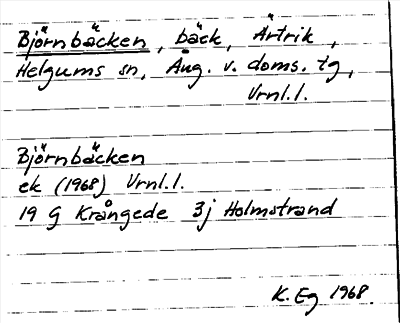 Björnbäcken, bäck, Ärtrik,
Helgums sn, Ång. v. doms. tg,
Vrnl.l.
Björnbäcken
ek (1968) Vrnl.l.
19 G Krångede 3j Holmstrand
K. Eg 1968.